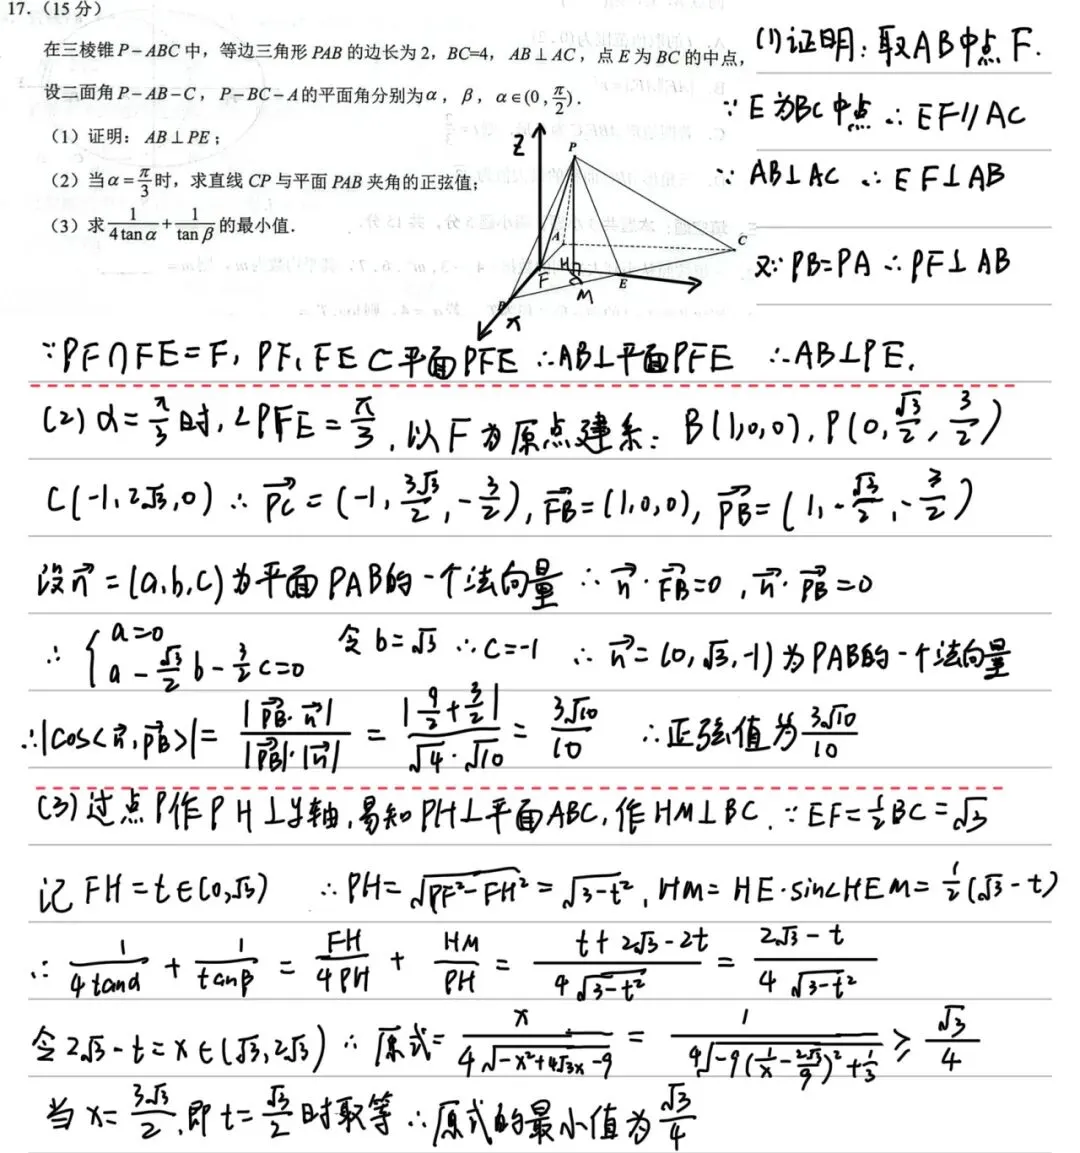 17.（15 分）
在三棱锥 P－ABC 中，等边三角形 PAB 的边长为 2，BC=4，AB⊥AC，点 E 为 BC 的中点，
设二面角 P－AB－C，P－BC－A 的平面角分别为 α，β，α∈(0, π/2)．
（1）证明：AB⊥PE；
（2）当 α=π/3 时，求直线 CP 与平面 PAB 夹角的正弦值；
（3）求 1/(4tanα)+1/tanβ 的最小值．
Z
P
A
C
H
F
E
M
B
x
(1)证明：取AB中点F.
∵E为BC中点 ∴EF∥AC
∵AB⊥AC ∴EF⊥AB
又∵PB=PA ∴PF⊥AB
∵PF∩FE=F, PF, FE⊂平面PFE ∴AB⊥平面PFE ∴AB⊥PE.
(2) α=π/3时,∠PFE=π/3, 以F为原点建系: B(1,0,0), P(0,√3/2, 3/2)
C(-1,2√3,0) ∴PC→=(-1, 3√3/2, -3/2), FB→=(1,0,0), PB→=(1,-√3/2,-3/2)
设n→=(a,b,c)为平面PAB的一个法向量 ∴n→·FB→=0, n→·PB→=0
∴{a=0 a-√3/2 b-3/2 c=0 令b=√3 ∴c=-1 ∴n→=(0,√3,-1)为PAB的一个法向量
∴|cos<n→,PB→>|=|PB→·n→|/(|PB→|·|n→|)=|9/2+3/2|/(√4·√10)=3√10/10 ∴正弦值为3√10/10
(3)过点P作PH⊥y轴,易知PH⊥平面ABC,作HM⊥BC. ∵EF=1/2BC=√3
记FH=t∈(0,√3) ∴PH=√(PF²-FH²)=√(3-t²), HM=HE·sin∠HEM=1/2(√3-t)
∴1/(4tanα)+1/tanβ=FH/(4PH)+HM/PH=(t+2√3-2t)/(4√(3-t²))=(2√3-t)/(4√(3-t²))
令2√3-t=x∈(√3,2√3) ∴原式=x/(4√(-x²+4√3x-9))=1/(4√(-9(1/x-2√3/9)²+1/3))≥√3/4
当x=3√3/2,即t=√3/2时取等∴原式的最小值为√3/4